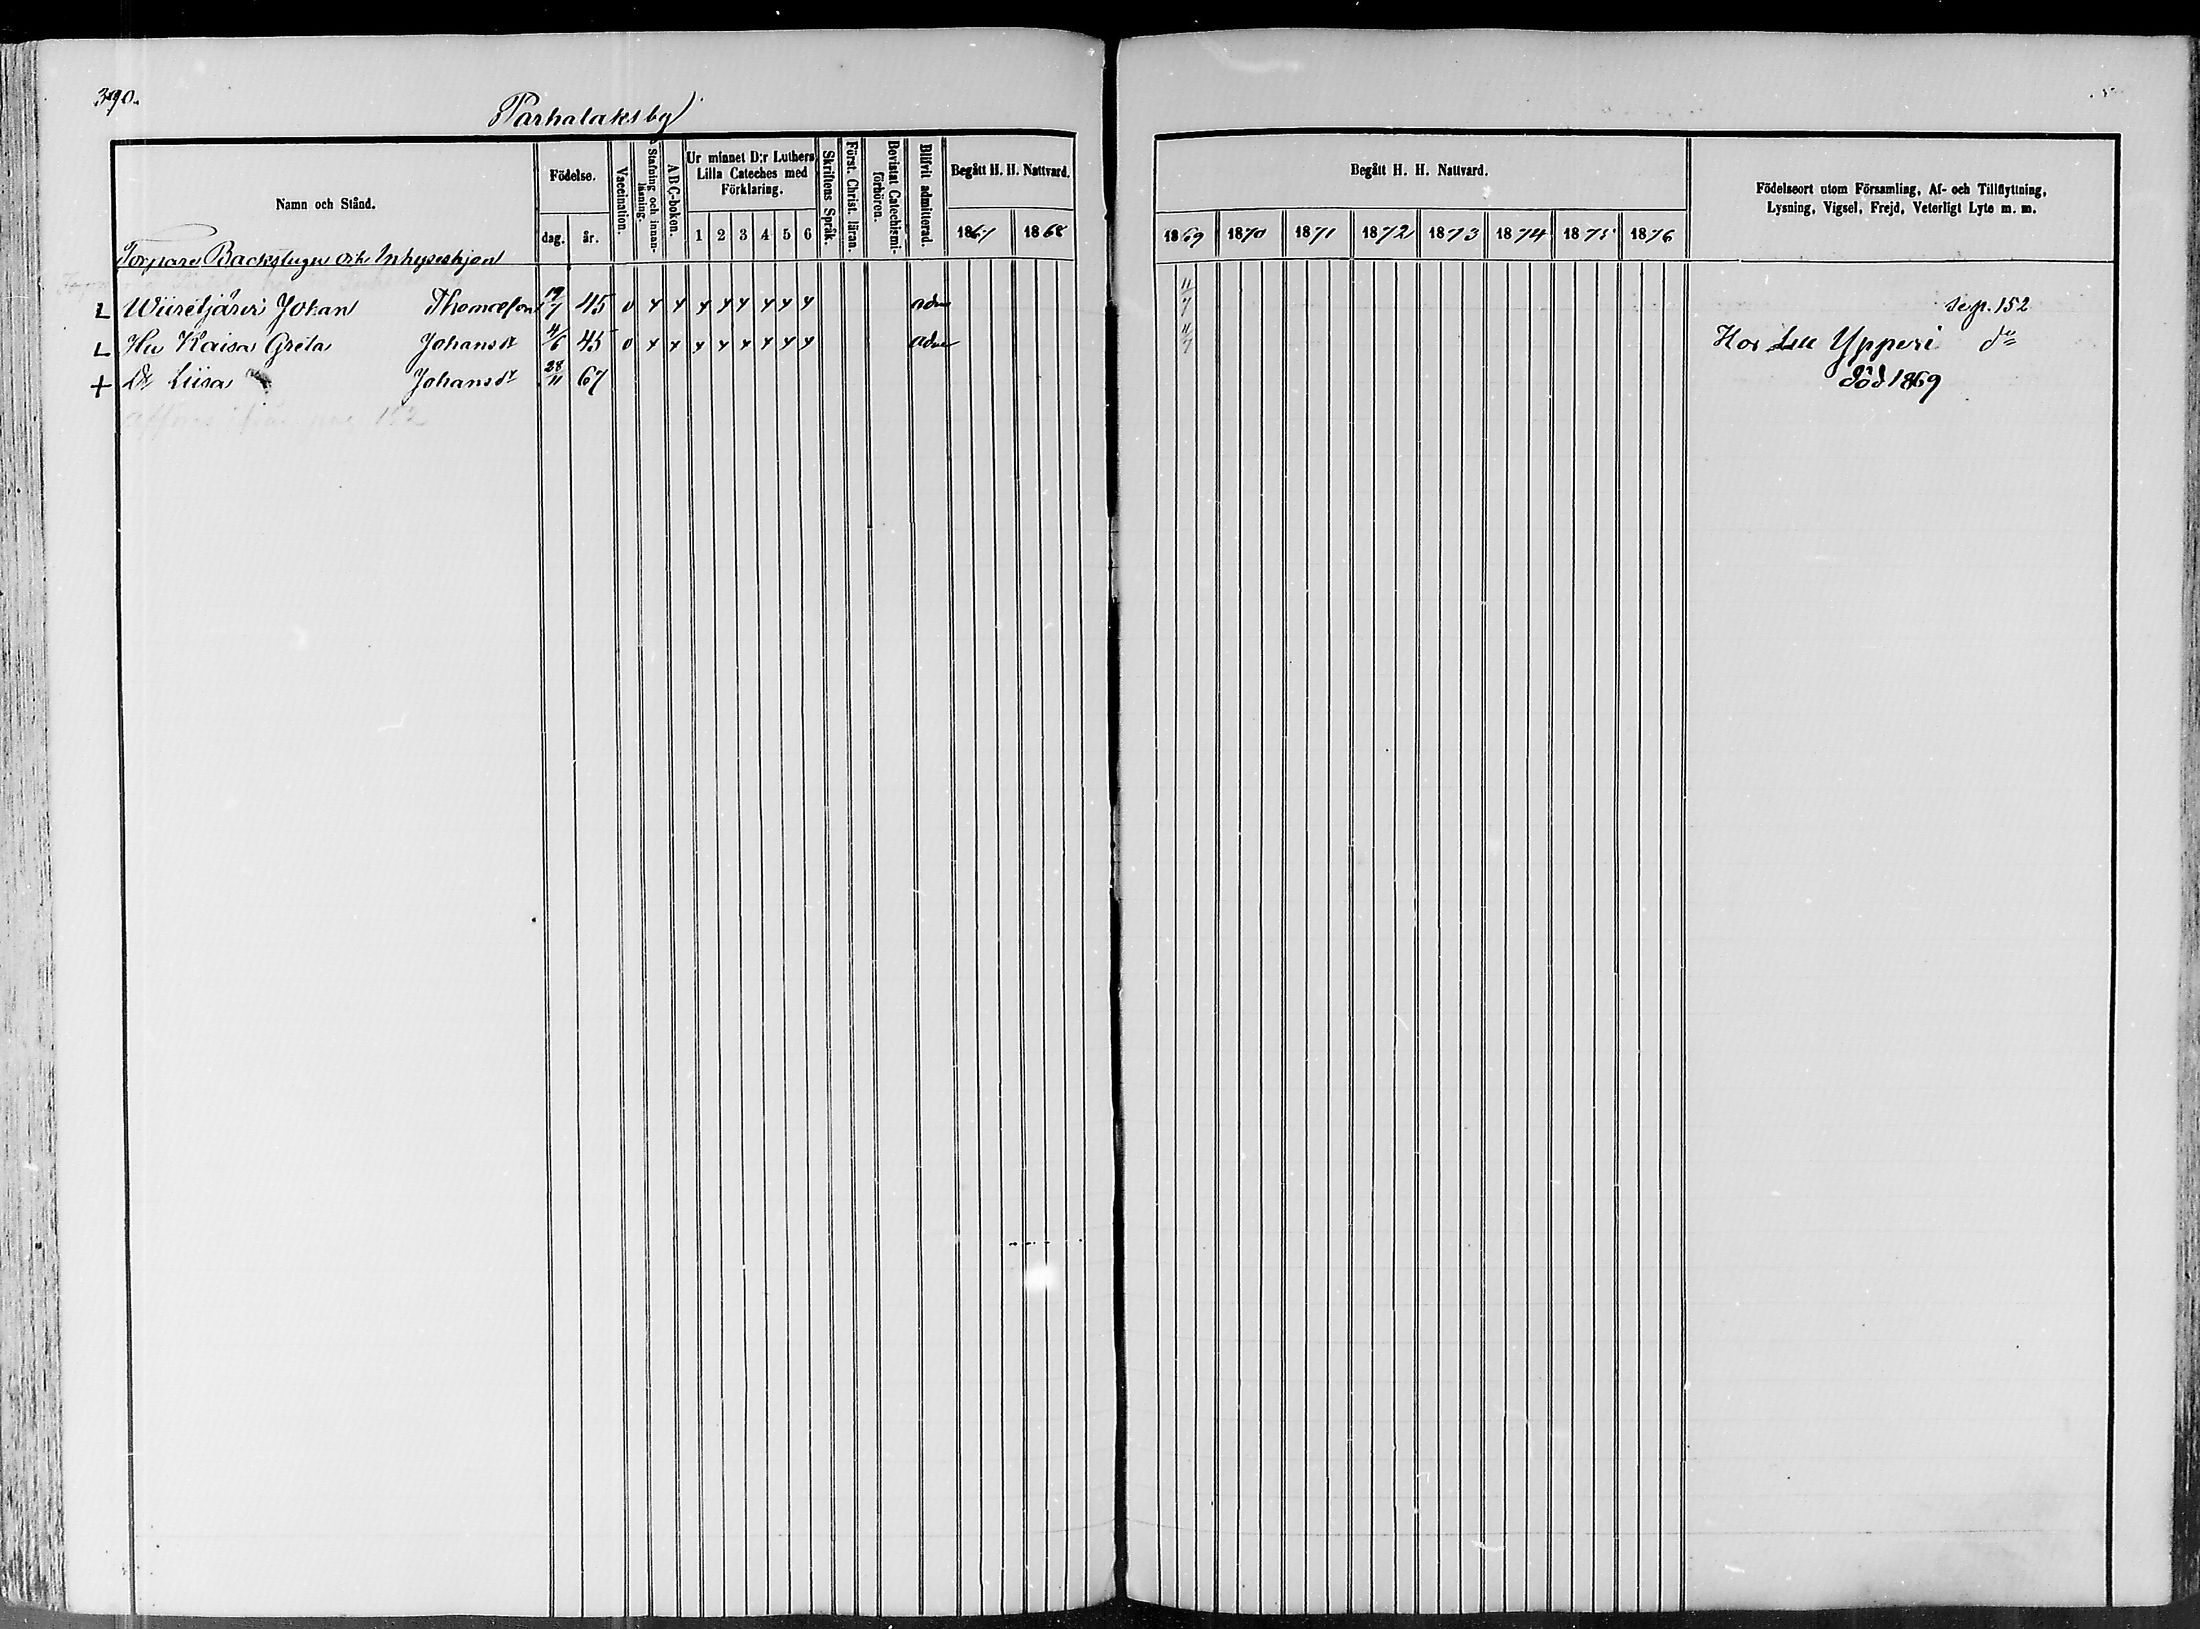 390.
Parhalaks by
Namn och Stånd.
Födelse.
dag. år.
Vaccination.
Stafning och innan-läsning.
A B C-boken.
Ur minnet D:r Luthers Lilla Cateches med Förklaring.
1 2 3 4 5 6
Skriftens Språk.
Först. Christ. läran.
Bevistat Catechismi-förhören.
Blifvit admitterad.
Begått H. H. Nattvard.
1867 1868
Begått H. H. Nattvard.
1869 1870 1871 1872 1873 1874 1875 1876
Födelseort utom Församling, Af- och Tillflyttning,
Lysning, Vigsel, Frejd, Veterligt Lyte m. m.
Torpare Backstugu och Inhyseshjon
L Johan Thomasson 19/7 45 v x x x x x x x x adm 11/7 se p. 152
L Hu Kaisa Greta Johansdr 4/6 45 v x x x x x x x x adm 11/7 Hos Ypperi do
+ Dr Liisa Johansdr 28/11 67 död 1869
152